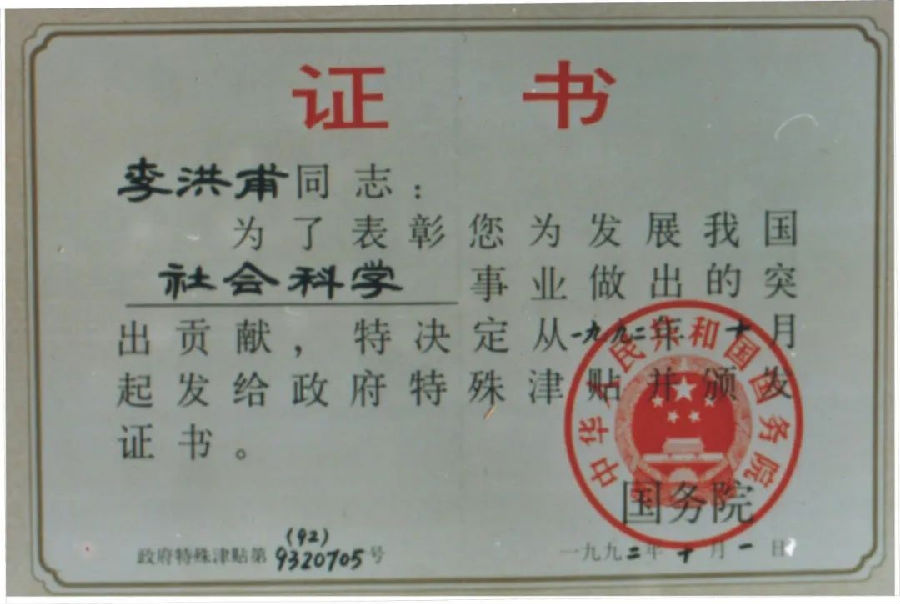 证书
李洪甫同志：
为了表彰您为发展我国
社会科学事业做出的突
出贡献，特决定从一九九二年十月
起发给政府特殊津贴并颁发
证书。
中华人民共和国国务院
国务院
(92)
政府特殊津贴第9320705号
一九九二年十月一日